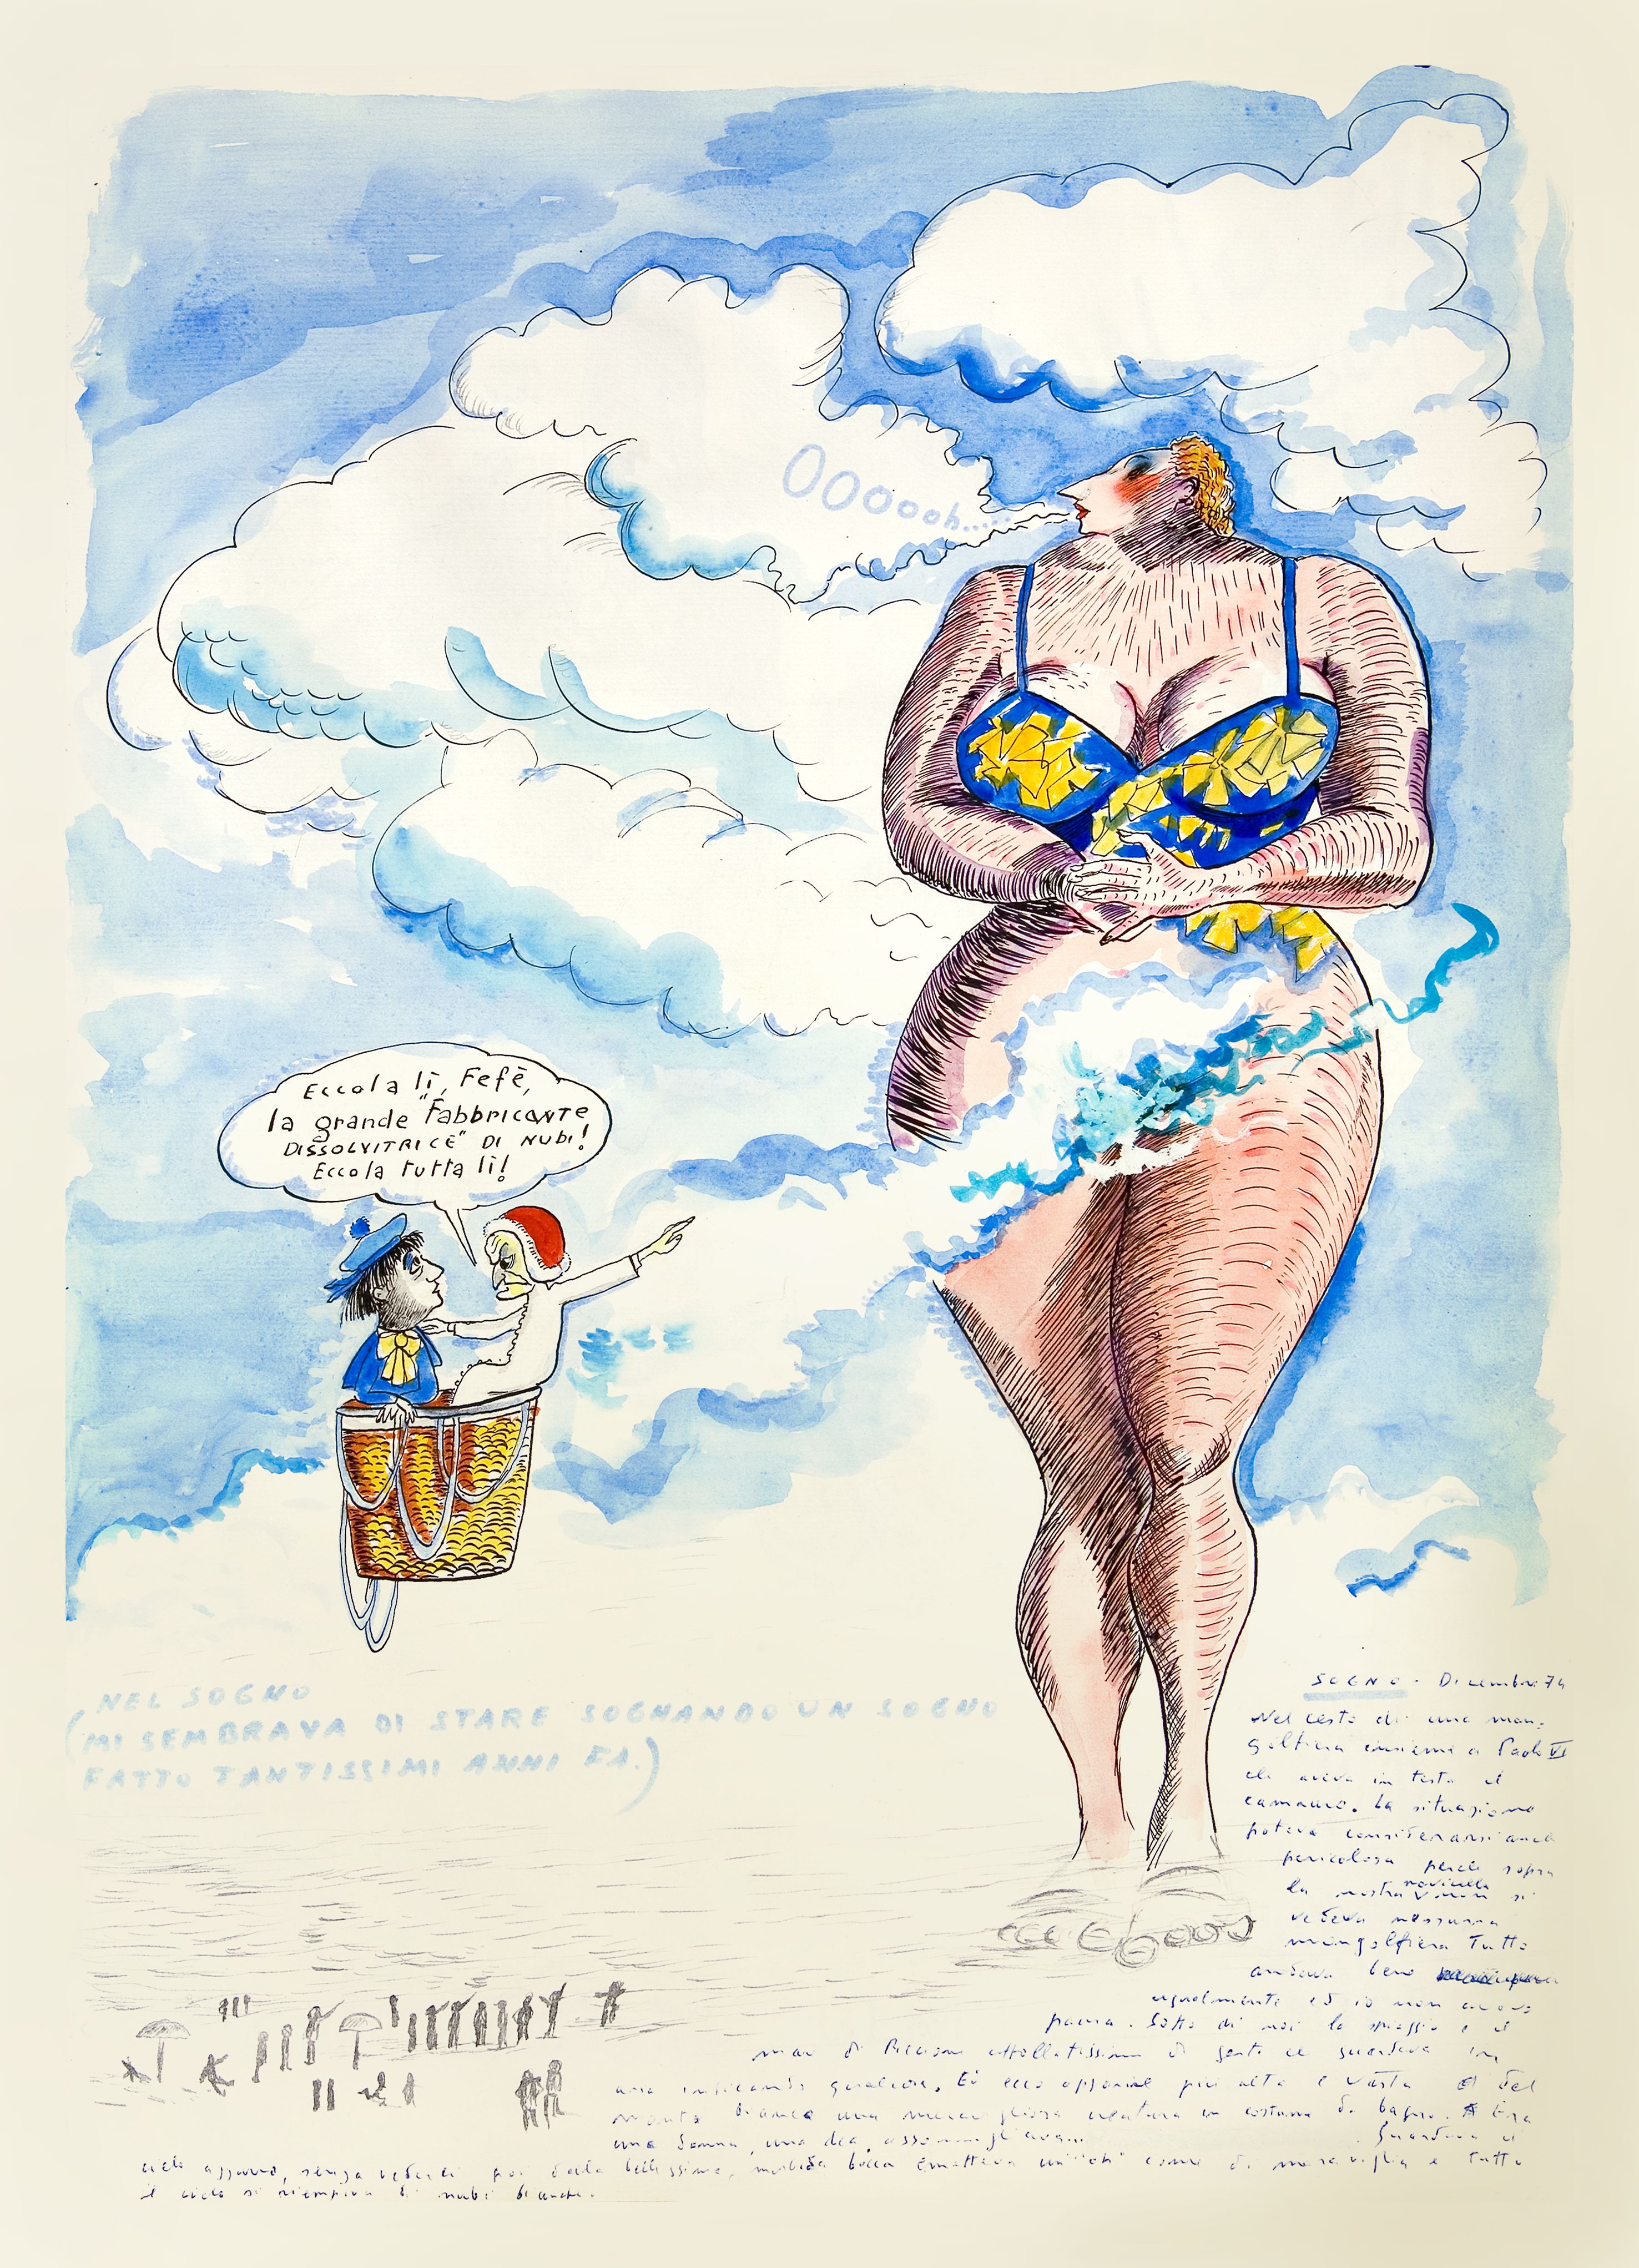 OOoooh.....
Eccola lì, Fefè,
la grande "Fabbricante
DISSOLVITRICE" DI NUBI!
Eccola tutta lì!
NEL SOGNO
(MI SEMBRAVA DI STARE SOGNANDO UN SOGNO
FATTO TANTISSIMI ANNI FA.)
SOGNO - Dicembre 74
Nel cesto di una mon-
golfiera insieme a Paolo VI
che aveva in testa il
camauro. La situazione
poteva considerarsi anche
pericolosa perché sopra
la nostra navicella non si
vedeva nessuna
mongolfiera Tutto
andava bene
ugualmente ed io non avevo
paura. Sotto di noi la spiaggia e il
mare di Riccione affollatissima di gente ci guardava in
aria indicando qualcosa. Ed ecco apparire più alta e vasta del
monte bianco una meravigliosa creatura in costume da bagno. Era
una donna, una dea,
Guardava il
cielo azzurro, senza vederci poi dalla bellissima, morbida bocca emetteva un "ooh" come di meraviglia e tutto
il cielo si riempiva di nubi bianche.